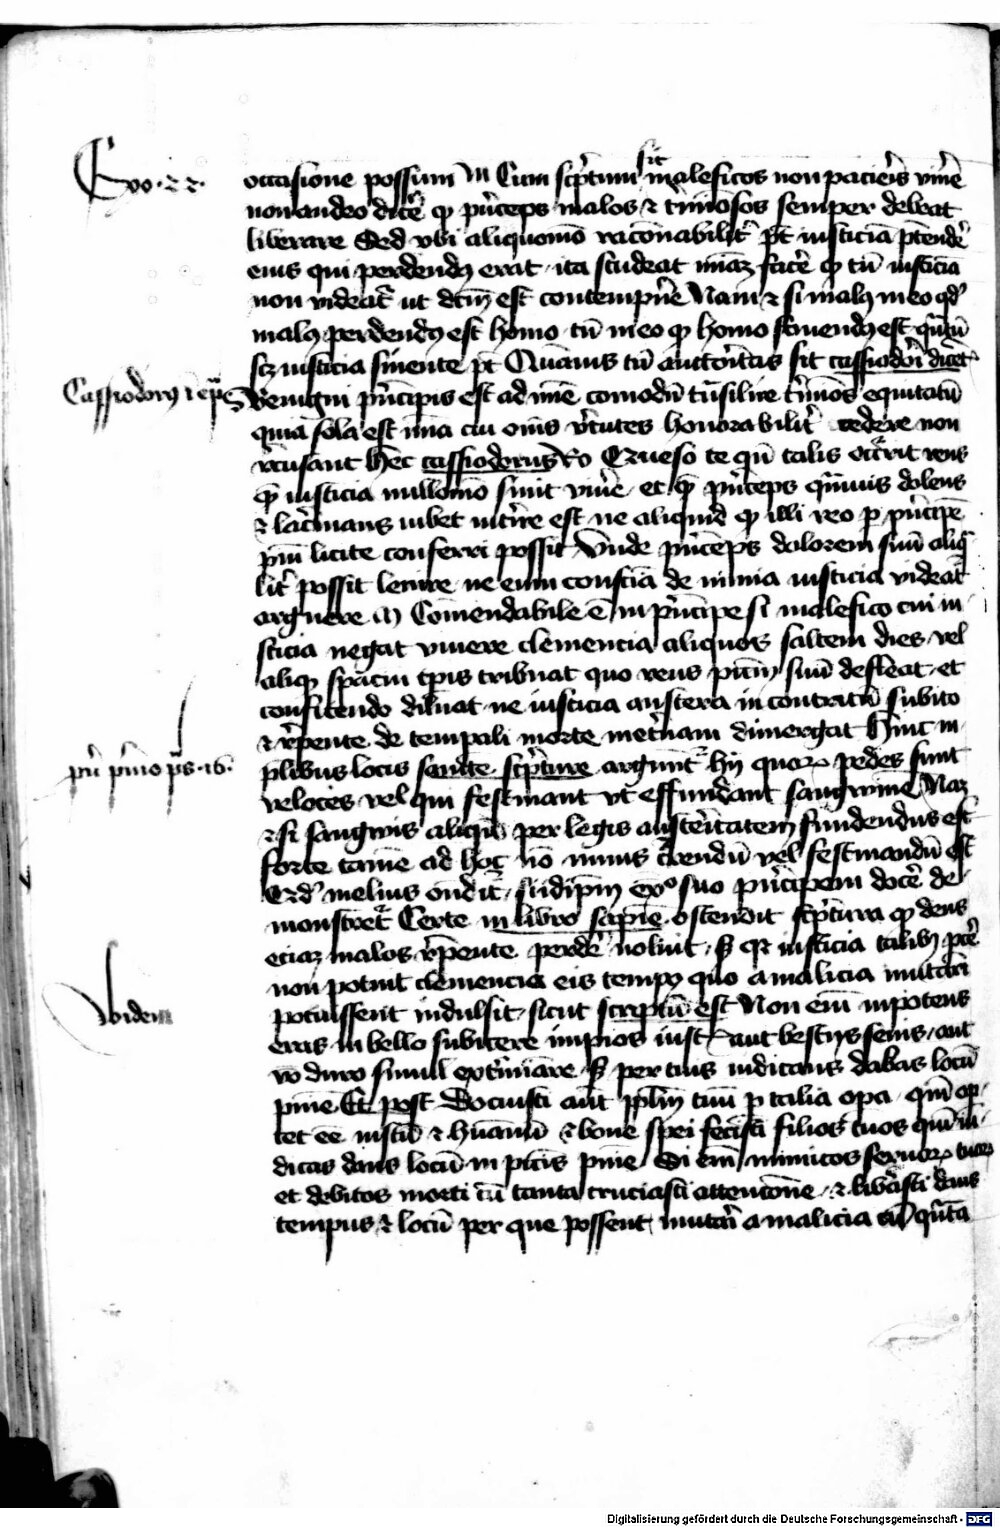 Exo. 22.
occasione possum M Cum scptum sit maleficos non pacieris vivere
non audeo dicere qp princeps malos et criminosos semper debeat
liberare Sed vbi aliquomodo racionabiliter pt iusticia ptendere
eius qui perdendus erat ita studeat facere qp tn iusticia
non videatur ut dictum est contempnere Nam et si malus in eo qd
malus perdendus est homo tn in eo qp homo est
scz iusticia sinente pt Quamvis tn auctoritas sit cassiodori dicentis
Cassiodorus
Benigni principis est ad comodum transilire terminos equitatis
quia sola est cui omnes virtutes honorabiliter cedere non
recusant Hec cassiodorus Ro Queso te qn talis reus
qp iusticia nullomodo sinit vivere et qp princeps quamvis dolens
et lacrimans iubet est ne aliquid qp illi reo p principem
pium licite conferri possit Unde princeps dolorem suum
possit lenire ne eum consciencia de nimia iusticia videatur
arguere M Comendabile e in principe si malefico cui iu
sticia negat vivere clemencia aliquos saltem dies vel
aliqp spacium tpis tribuat quo reus suum defleat et
confitendo diluat ne iusticia austera in contritum subito
et repente de temporali morte in eternam dimergat Hinc in
pu primo ps. 16.
pluribus locis sancte scripture arguuntur hij quorum pedes sunt
veloces vel qui festinant ut effundant sangwinem Nam
et si sangwis alicuius per legis austeritatem fundendus est
forte tamen ad hoc non nimis currendum vel festinandum est
Qd melius suo principem docere de
monstretur Certe in libro sapiencie ostendit scriptura qp deus
eciam malos repente perdere noluit sed qr iusticia talibus pcere
non potuit clemencia eis tempus quo a malicia mutari
Ibidem
potuissent indulsit sicut scriptum est Non enim inpotens
eras in bello subicere impios iustis aut bestijs sevis aut
vo duro simul exterminare sed per tuis iudicans dabas locum
pnie Et post Docuisti aut pplm tuum p talia opera qm opor
tet ee iustum et humanum et bone spei fecisti filios tuos qm iu
dicas dans locum in pctis pnie Si eni inimicos servorum tuorum
et debitos morti cum tanta cruciasti attencione et liberasti dans
tempus et locum per que possent mutari a malicia cum quanta
Digitalisierung gefördert durch die Deutsche Forschungsgemeinschaft - DFG